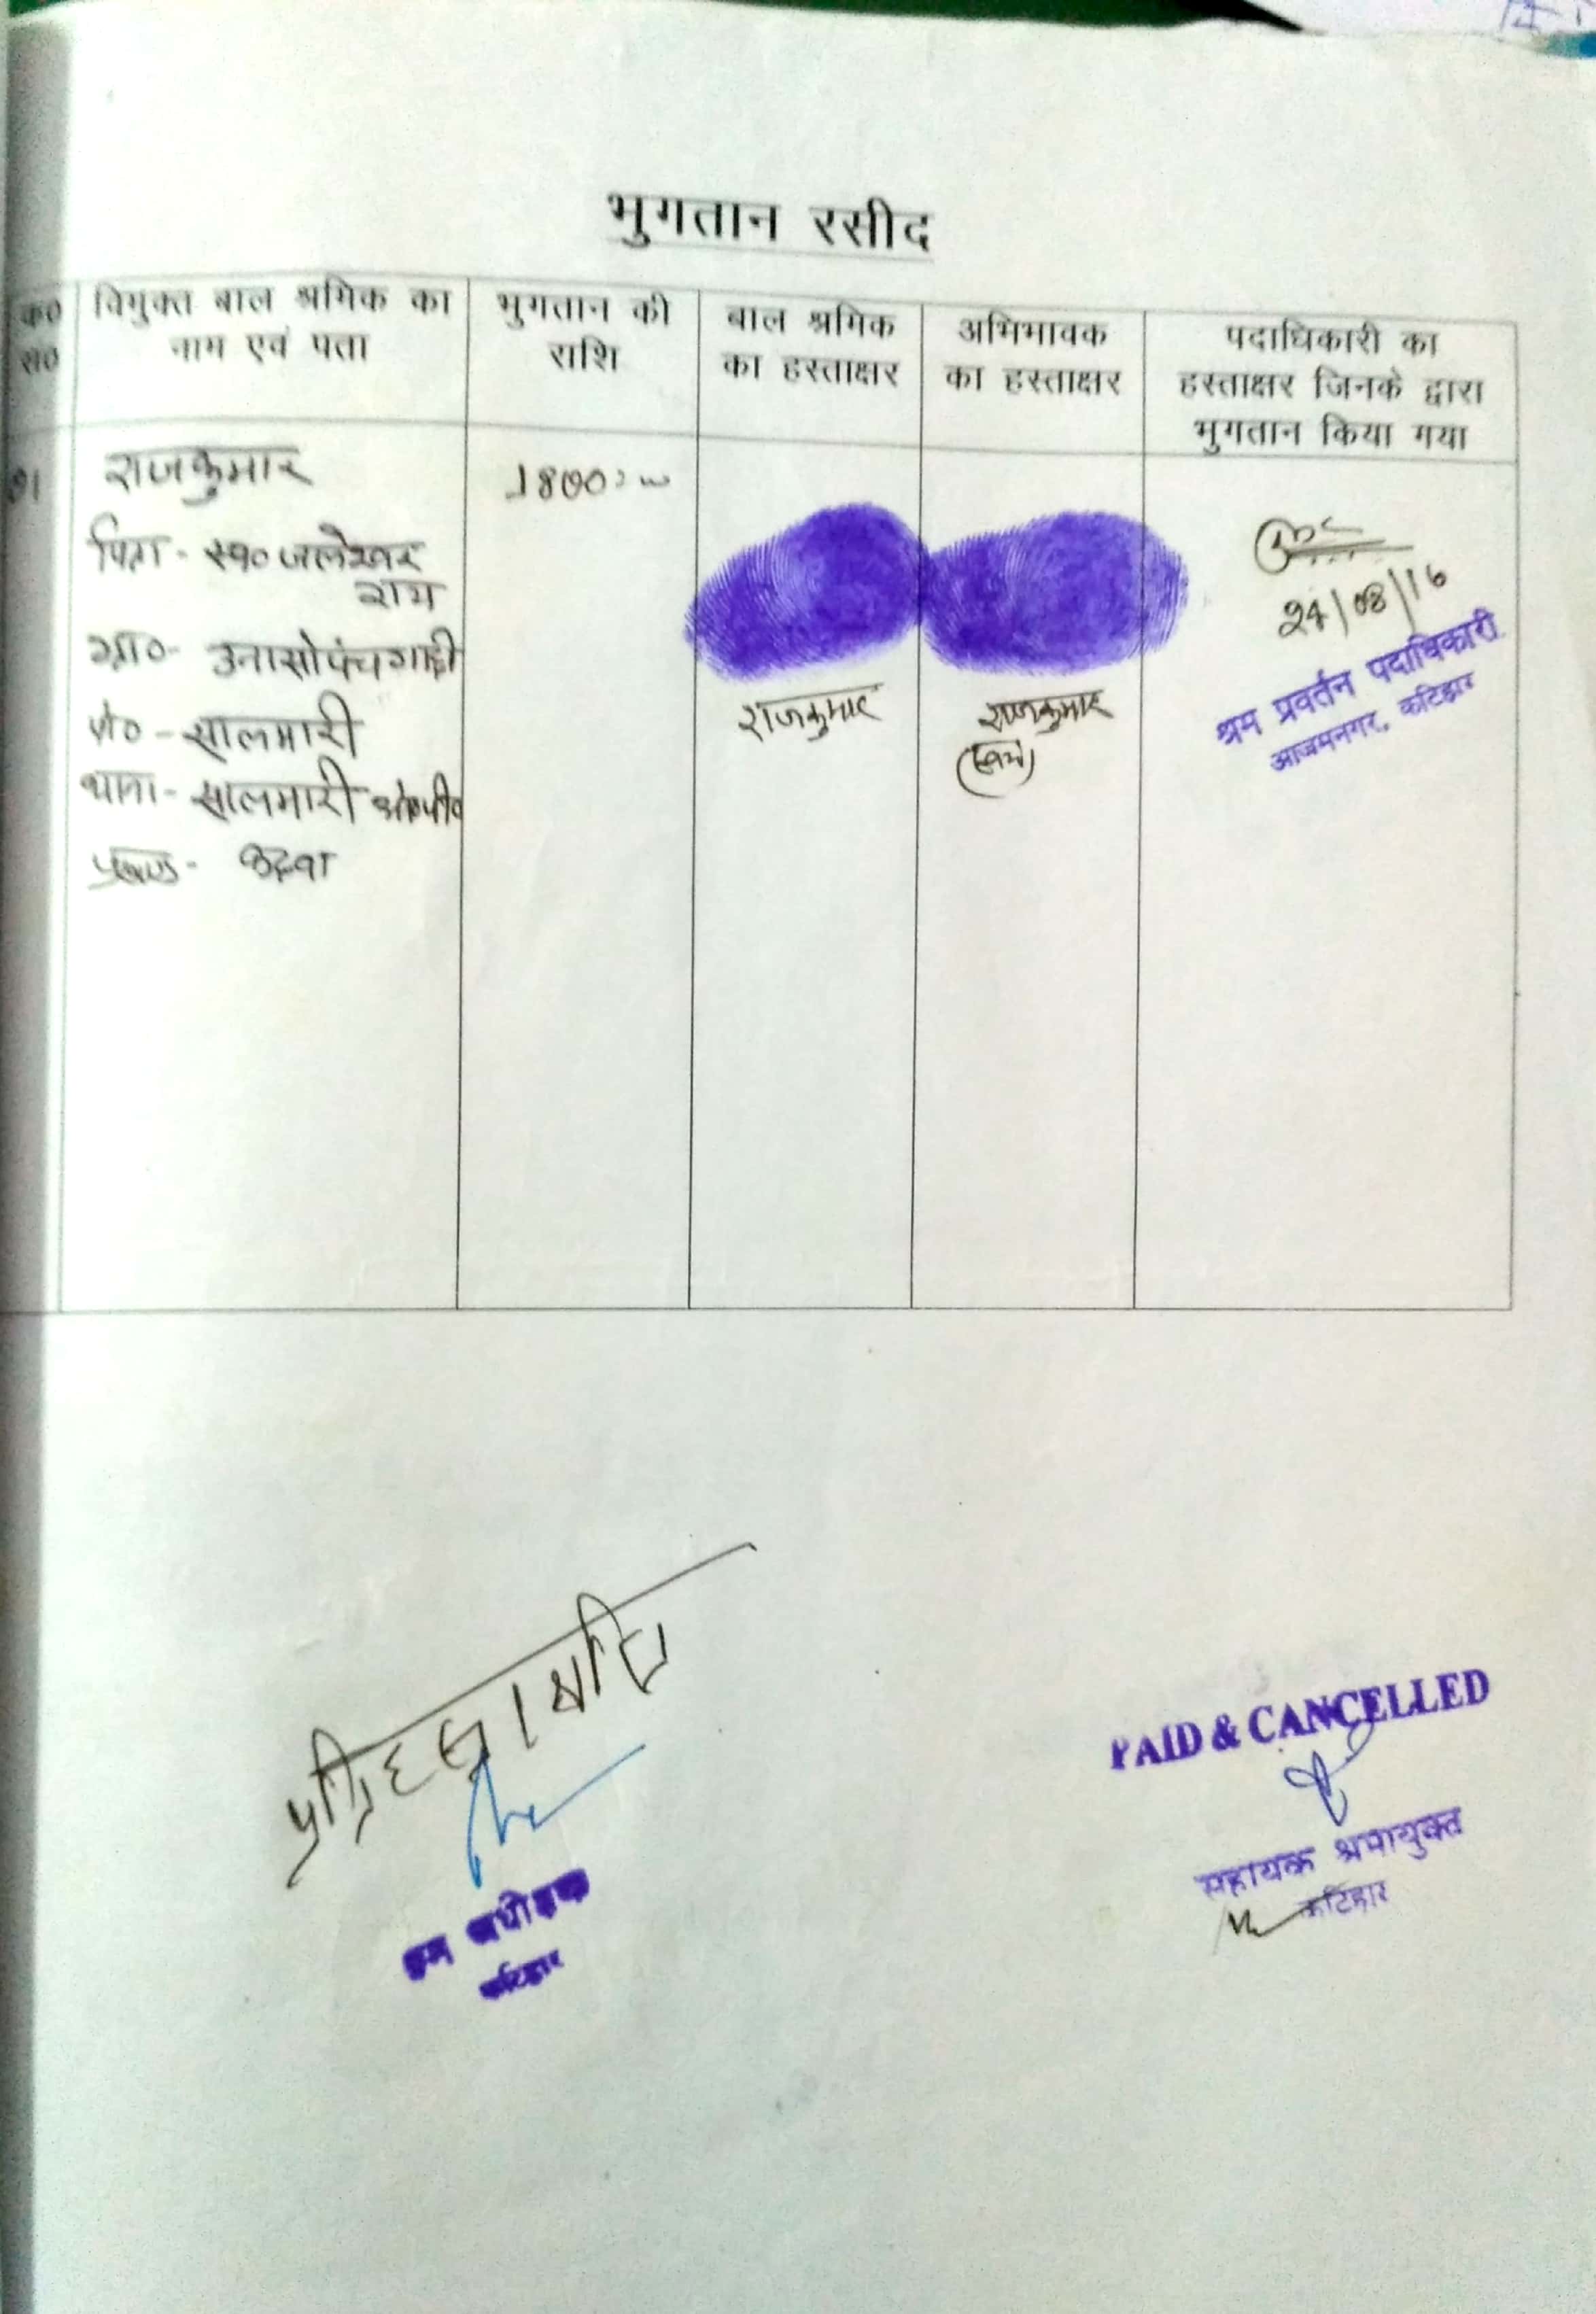 भुगतान रसीद
क०
स०
विमुक्त बाल श्रमिक का
नाम एवं पता
भुगतान की
राशि
बाल श्रमिक
का हस्ताक्षर
अभिभावक
का हस्ताक्षर
पदाधिकारी का
हस्ताक्षर जिनके द्वारा
भुगतान किया गया
01
राजकुमार
पिता - स्व० जलेश्वर
राय
ग्रा०-
पो० - सालमारी
थाना - सालमारी ओ०पी०
प्रखण्ड - कदवा
1800
राजकुमार
राजकुमार
(स्वयं)
24/08/16
श्रम प्रवर्तन पदाधिकारी
आजमनगर, कटिहार
श्रम अधीक्षक
कटिहार
PAID & CANCELLED
सहायक श्रमायुक्त
कटिहार